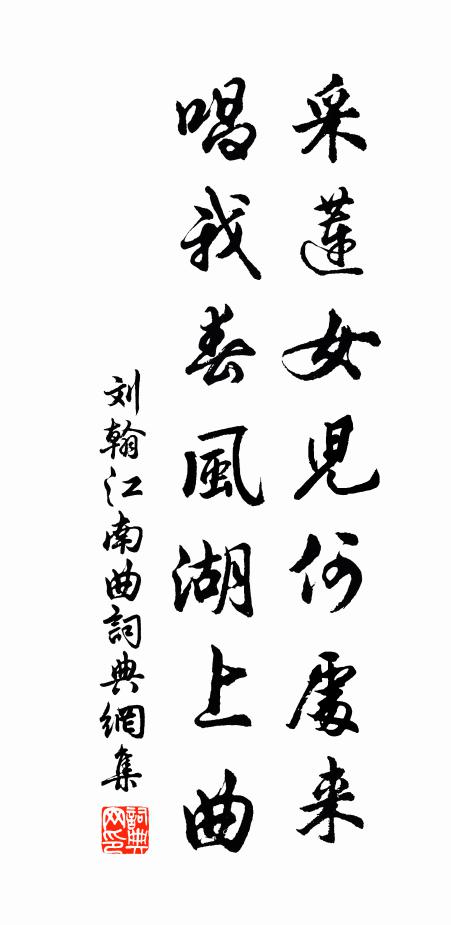 采蓮女兒何處来
唱我春風湖上曲
刘翰江南曲詞典網集
詞典网印